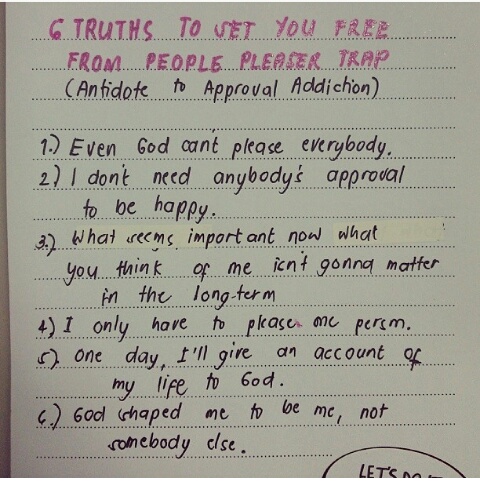 6 TRUTHS TO SET YOU FREE
FROM PEOPLE PLEASER TRAP
(Antidote to Approval Addiction)
1.) Even God can't please everybody.
2) I don't need anybody's approval
to be happy.
3.) What seems important now what
you think of me isn't gonna matter
in the long-term
4) I only have to please one person.
5) One day, I'll give an account of
my life to God.
6.) God shaped me to be me, not
somebody else.
LET'S DO IT